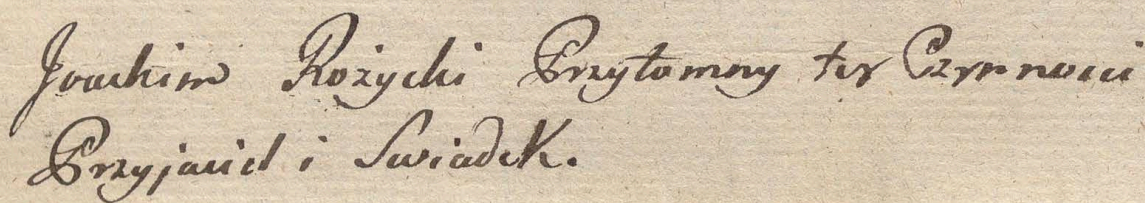 Joachim Rożycki Przytomny tey Czynnosci
Przyjaciel i Swiadek.